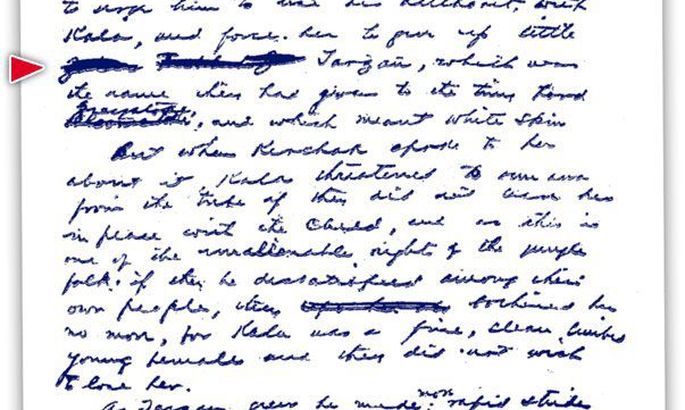 to urge him to use his authority, with
Kala, and force her to give up little
Tarzan, which was
the name they had given to the tiny Lord
Greystoke
, and which meant white skin
But when Kerchak spoke to her
about it Kala threatened to run away
from the tribe if they did not leave her
in peace with the child, and as this is
one of the unalienable rights of the jungle
folk if they be dissatisfied among their
own people, they bothered her
no more, for Kala was a fine, clean limbed
young female and they did not wish
to lose her.
As Tarzan grew he made more rapid strides